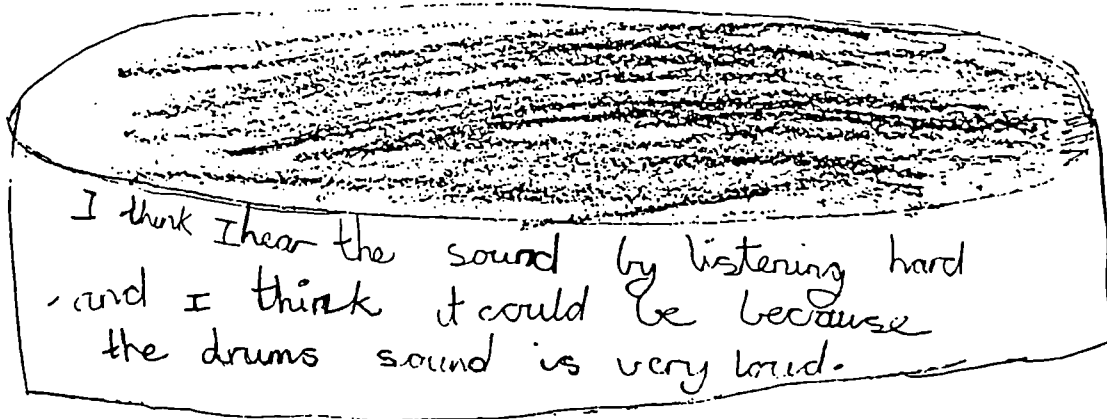 I think I hear the sound by listening hard
and I think it could be because
the drums sound is very loud.